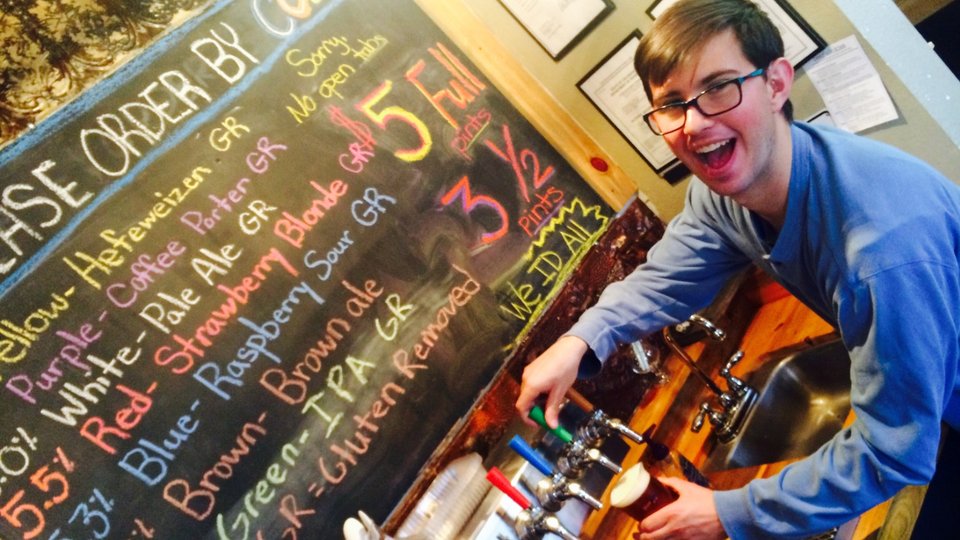 ORDER BY
Sorry,
No open tabs
Yellow- Hefeweizen GR
Purple- Coffee Porter GR
White- Pale Ale GR
5.5% Red- Strawberry Blonde GR
Blue- Raspberry Sour GR
Brown- Brown ale
Green- IPA GR
GR = Gluten Removed
$5 Full
pints
3 1/2
pints
We ID All